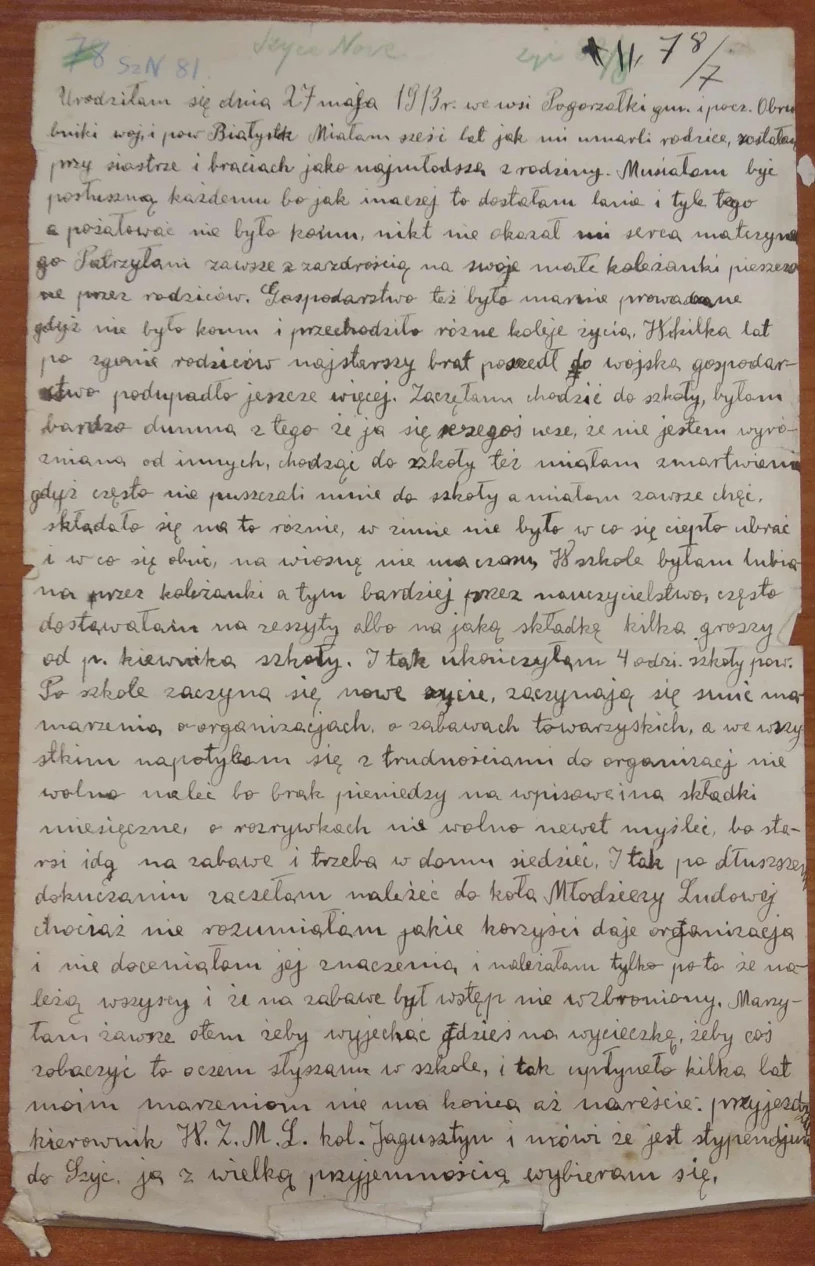 78 SzN 81 Szyce Nowe II, 78/7
Urodziłam się dnia 27 maja 1913 r. we wsi Pogorzałki gm. i pocz. Obru
bniki woj. i pow Białystok Miałam sześć lat jak mi umarli rodzice, zostałam
przy siastrze i braciach jako najmłodsza z rodziny. Musiałam być
posłuszną każdemu bo jak inaczej to dostałam lanie i tyle tego
a pożałować nie było komu, nikt nie okazał mi serca matczyne
go Patrzyłam zawsze z zazdrością na swoje małe koleżanki pieszczo
ne przez rodziców. Gospodarstwo też było marnie prowadzone
gdyż nie było komu i przechodziło różne koleje życia. W kilka lat
po zgonie rodziców najstarszy brat poszedł do wojska gospodar-
stwo podupadło jeszcze więcej. Zaczęłam chodzić do szkoły, byłam
bardzo dumna z tego że ja się czegoś ucze, że nie jestem wyró-
zniana od innych, chodząc do szkoły też miałam zmartwienia
gdyż często nie puszczali mnie do szkoły a miałam zawsze chęć.
składało się na to różnie, w zimie nie było w co się ciepło ubrać
i w co się obuć, na wiosnę nie ma czasu, W szkole byłam lubia
na przez koleżanki a tym bardziej przez nauczycielstwo, często
dostawałam na zeszyty albo na jaką składkę kilka groszy
od p. kiewnika szkoły. I tak ukończyłam 4 odzi. szkoły pow.
Po szkole zaczyna się nowe życie, zaczynają się snuć ma
marzenia o organizacjach, o zabawach towarzyskich, a we wszy
stkim napotykam się z trudnościami do organizacj nie
wolno nalec bo brak pieniedzy na wpisowe i na składki
miesięczne, o rozrywkach nie wolno newet myśleć, bo sta-
rsi idą na zabawe i trzeba w domu siedzieć. I tak po dłuższem
dokuczaniu zaczełam należeć do koła Młodzieży Ludowej
chociaż nie rozumiałam jakie korzyści daje organizacja
i nie doceniałam jej znaczenia i należałam tylko po to że na-
leżą wszyscy i że na zabawe był wstęp nie wzbroniony. Marzy-
łam zawsze otem żeby wyjechać gdzieś na wycieczkę, żeby coś
zobaczyć to oczem słyszanu w szkole, i tak upłyneło kilka lat
moim marzeniom nie ma końca aż nareście: przyjeżdża
kierownik W. Z. M. L. kol. Jagusztyn i mówi że jest stypendjum
do Szyc. ja z wielką przyjemnością wybieram się.